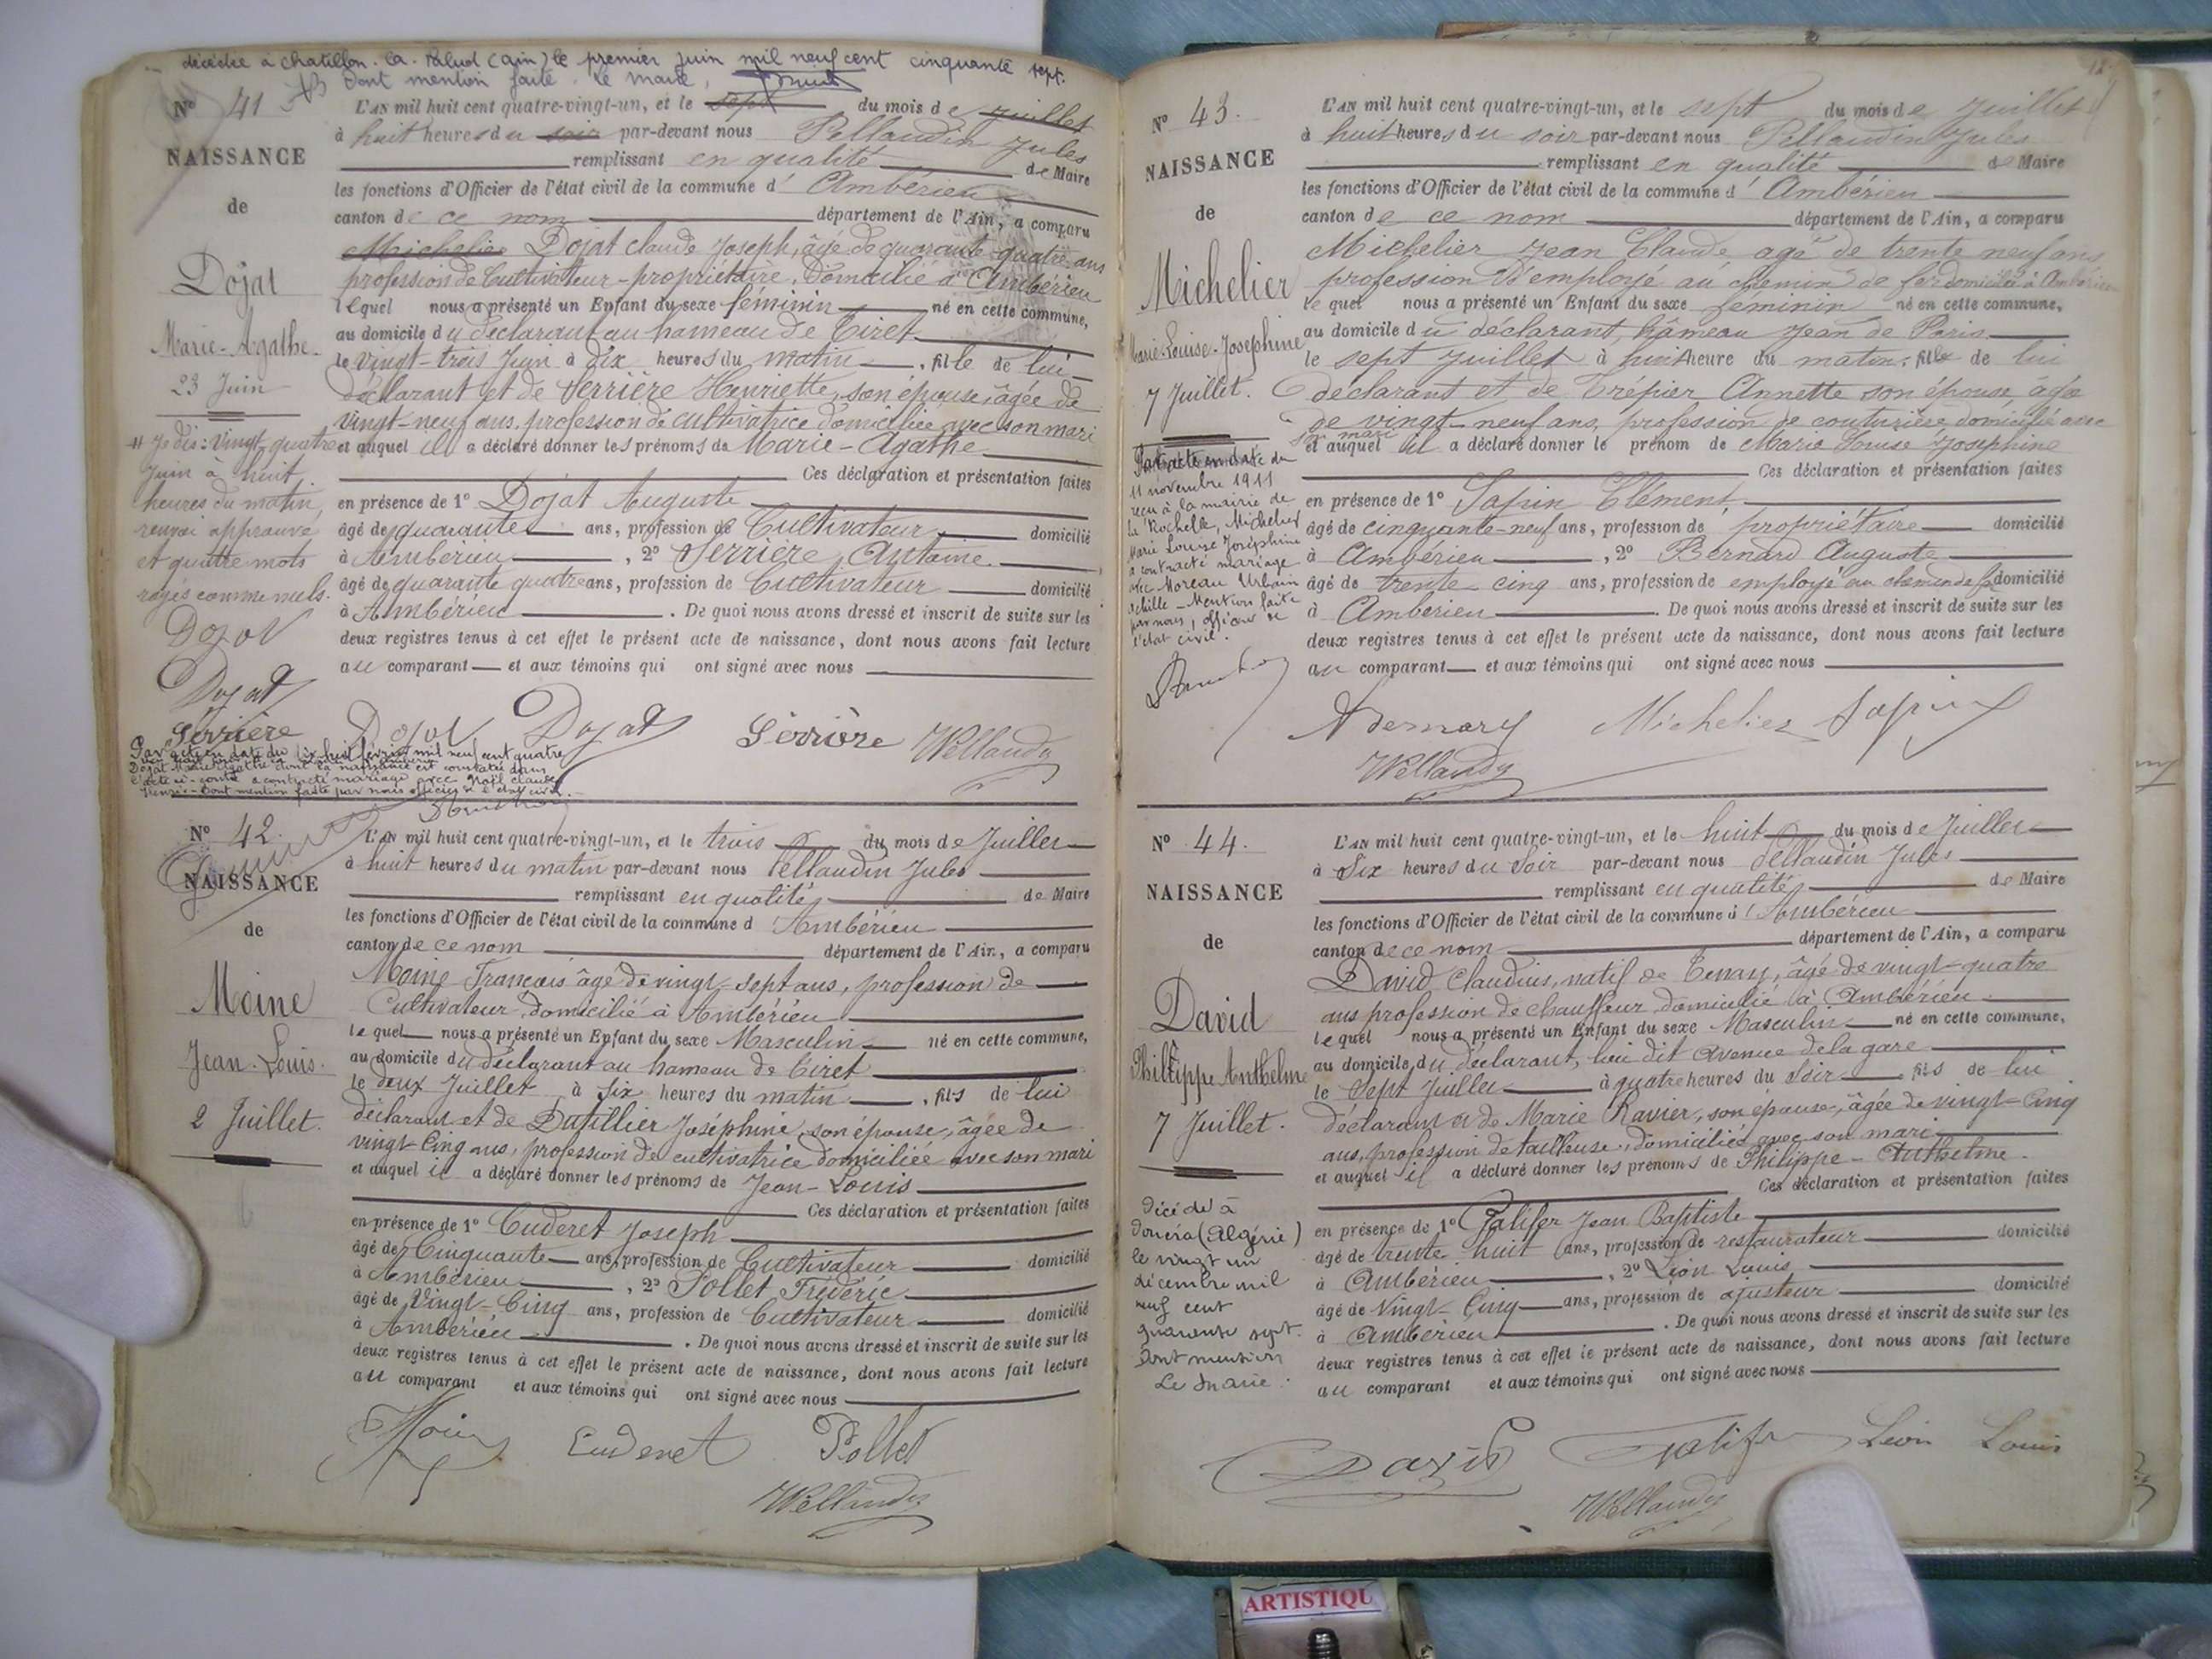 décédée à Chatillon. la. Palud (Ain) le premier juin mil neuf cent cinquante sept.
Dont mention faite. le maire,
N° 41
NAISSANCE
de
Dojat
Marie-Agathe
23 Juin
L'AN mil huit cent quatre-vingt-un, et le sept du mois de juillet
à huit heures du soir par-devant nous Pellaudin Jules
remplissant en qualité de Maire
les fonctions d'Officier de l'état civil de la commune d' Ambérieu
canton de ce nom département de l'Ain, a comparu
Michelier Dojat Claude Joseph, âgé de quarante-quatre ans
profession de Cultivateur-propriétaire, domicilié à Ambérieu
lequel nous a présenté un Enfant du sexe féminin né en cette commune,
au domicile du déclarant au hameau de Tiret
le vingt-trois Juin à dix heures du matin, fille de lui
déclarant et de Serrière Henriette, son épouse, âgée de
vingt-neuf ans, profession de cultivatrice domiciliée avec son mari
et auquel il a déclaré donner les prénoms de Marie-Agathe
Ces déclaration et présentation faites
en présence de 1° Dojat Auguste
âgé de quarante ans, profession de Cultivateur domicilié
à Ambérieu, 2° Serrière Antoine
âgé de quarante quatre ans, profession de Cultivateur domicilié
à Ambérieu. De quoi nous avons dressé et inscrit de suite sur les
deux registres tenus à cet effet le présent acte de naissance, dont nous avons fait lecture
au comparant et aux témoins qui ont signé avec nous
Je dis: Vingt-quatre
Juin à huit
heures du matin
renvoi approuvé
et quatre mots
rayés comme nuls.
Dojat
Dojat
Serrière
Dojat Dojat Serrière
Par acte en date du dix huit février mil neuf cent quatre
Dojat Marie Agathe dont la naissance est constatée dans
l'acte ci-contre a contracté mariage avec Noël Claude
Henri - Dont mention faite par nous officier de l'état civil.
N° 42.
NAISSANCE
de
Moine
Jean-Louis.
2 Juillet.
L'AN mil huit cent quatre-vingt-un, et le trois du mois de Juillet
à huit heures du matin par-devant nous Pellaudin Jules
remplissant en qualité de Maire
les fonctions d'Officier de l'état civil de la commune d Ambérieu
canton de ce nom département de l'Ain, a comparu
Moine François âgé de vingt-sept ans, profession de
Cultivateur, domicilié à Ambérieu
lequel nous a présenté un Enfant du sexe Masculin né en cette commune,
au domicile du déclarant au hameau de Tiret
le deux Juillet à six heures du matin, fils de lui
déclarant et de Joséphine, son épouse, âgée de
vingt-Cinq ans, profession de cultivatrice domiciliée avec son mari
et auquel il a déclaré donner les prénoms de Jean-Louis
Ces déclaration et présentation faites
en présence de 1° Cuderet Joseph
âgé de Cinquante ans, profession de Cultivateur domicilié
à Ambérieu, 2° Pollet Frédéric
âgé de Vingt-Cinq ans, profession de Cultivateur domicilié
à Ambérieu. De quoi nous avons dressé et inscrit de suite sur les
deux registres tenus à cet effet le présent acte de naissance, dont nous avons fait lecture
au comparant et aux témoins qui ont signé avec nous
Moine Cuderet Pollet
N° 43.
NAISSANCE
de
Michelier
Marie-Louise-Joséphine
7 Juillet.
L'AN mil huit cent quatre-vingt-un, et le sept du mois de Juillet
à huit heures du soir par-devant nous Pellaudin Jules
remplissant en qualité de Maire
les fonctions d'Officier de l'état civil de la commune d' Ambérieu
canton de ce nom département de l'Ain, a comparu
Michelier Jean Claude agé de trente neuf ans
profession d'employé au chemin de fer domicilié à Ambérieu
lequel nous a présenté un Enfant du sexe féminin né en cette commune,
au domicile du déclarant, hâmeau Jean de Paris
le sept Juillet à huit heure du matin, fille de lui
déclarant et de Trépier Annette son épouse âgée
de vingt-neuf ans, profession de couturière domiciliée avec
son mari
et auquel il a déclaré donner le prénom de Marie Louise Joséphine
Ces déclaration et présentation faites
en présence de 1° Sapin Clément,
âgé de cinquante-neuf ans, profession de propriétaire domicilié
à Ambérieu, 2° Bernard Auguste
âgé de trente cinq ans, profession de employé au chemin de fer domicilié
à Ambérieu. De quoi nous avons dressé et inscrit de suite sur les
deux registres tenus à cet effet le présent acte de naissance, dont nous avons fait lecture
au comparant et aux témoins qui ont signé avec nous
Par acte en date du
11 novembre 1911
reçu à la mairie de
La Rochelle, Michelier
Marie Louise Joséphine
a contracté mariage
avec Moreau Urbain
Achille - Mention faite
par nous, officier de
l'état civil.
Michelier Sapin
N° 44.
NAISSANCE
de
David
Philippe Anthelme
7 Juillet.
L'AN mil huit cent quatre-vingt-un, et le huit du mois de Juillet
à Six heures du Soir par-devant nous Pellaudin Jules
remplissant en qualité de Maire
les fonctions d'Officier de l'état civil de la commune d' Ambérieu
canton de ce nom département de l'Ain, a comparu
David Claudius, natif de Tenay, âgé de vingt-quatre
ans profession de chauffeur, domicilié à Ambérieu
lequel nous a présenté un Enfant du sexe Masculin né en cette commune,
au domicile du déclarant, lieu dit avenue de la gare
le Sept Juillet à quatre heures du Soir, fils de lui
déclarant et de Marie Ravier, son épouse, âgée de vingt-Cinq
ans, profession de tailleuse, domiciliée avec son mari
et auquel il a déclaré donner les prénoms de Philippe-Anthelme.
Ces déclaration et présentation faites
en présence de 1° Falifer Jean Baptiste
âgé de trente huit ans, profession de restaurateur domicilié
à Ambérieu, 2° Léon Louis,
âgé de Vingt-Cinq ans, profession de ajusteur domicilié
à Ambérieu. De quoi nous avons dressé et inscrit de suite sur les
deux registres tenus à cet effet le présent acte de naissance, dont nous avons fait lecture
au comparant et aux témoins qui ont signé avec nous
Décédé à
Douéra (Algérie)
le vingt un
décembre mil
neuf cent
quarante sept.
Dont mention
Le Maire:
David Falifer Léon Louis
ARTISTIQU